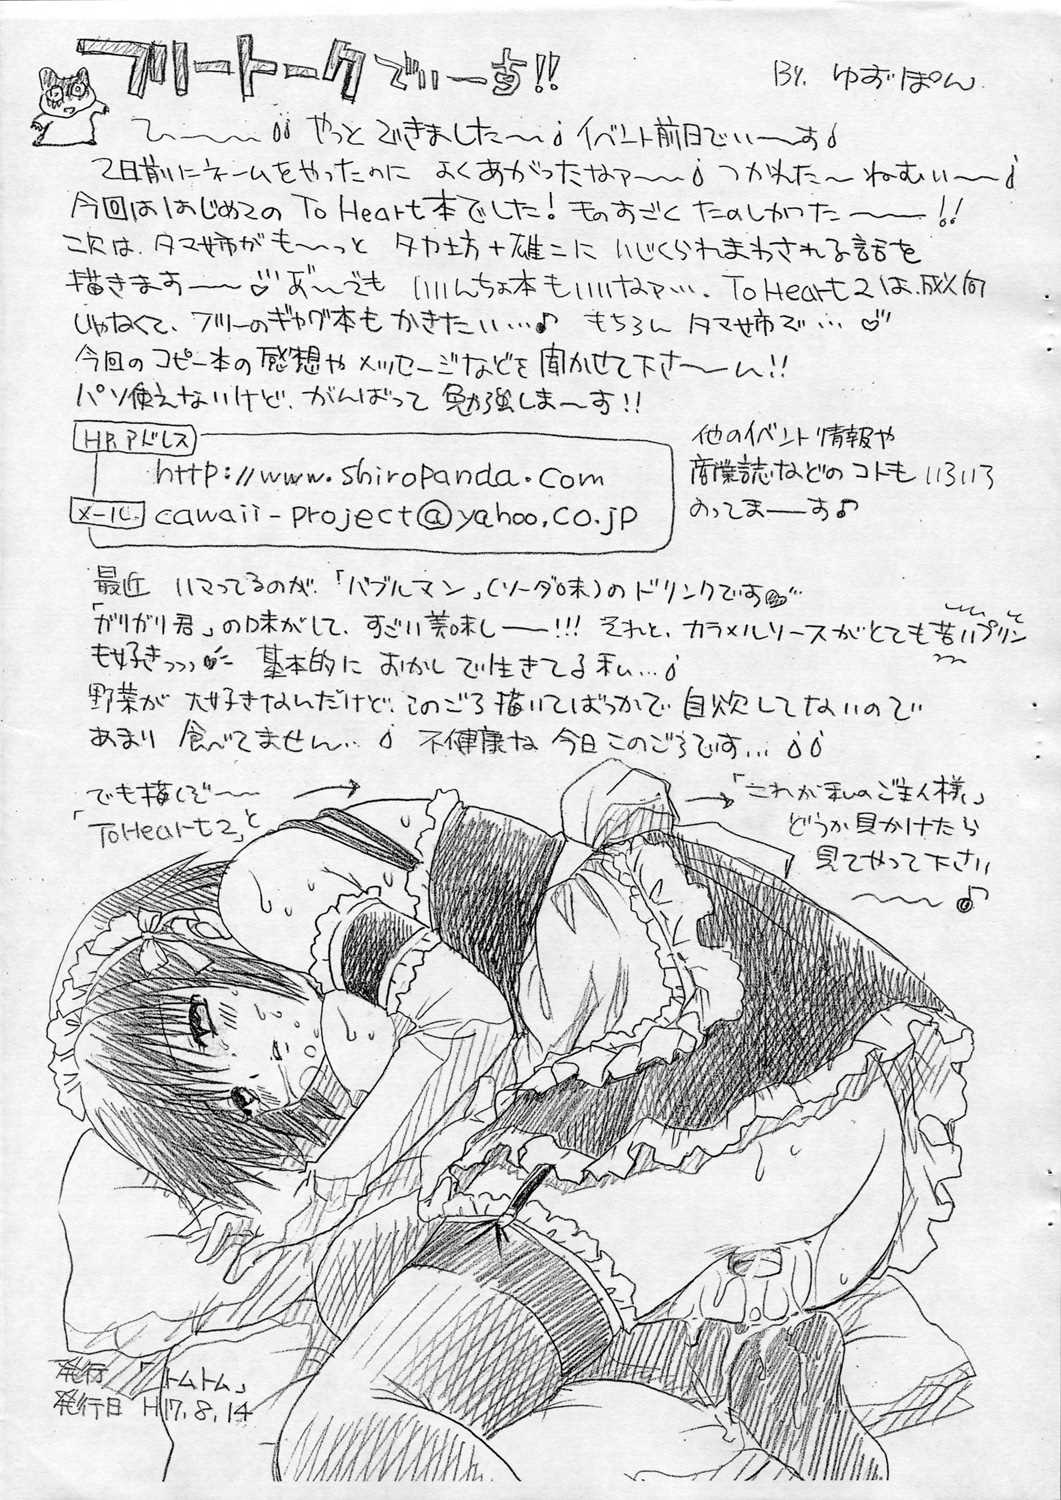 フリートークでぃーす!!
BY. ゆずぽん
ひ〜〜〜 やっと できました〜 イベント前日でぃーす
2日前にネームをやったのに よくあがったなァ〜〜 つかれた〜 ねむぃ〜〜
今回ははじめての To Heart本でした! ものすごく たのしかった〜〜!!
二次は、タマ姉がも〜〜っと タカ坊+雄二に いじくられまわされる話を
描きます〜〜♡ あ゛〜でも いいんちょ本もいいなァ…、To Heart 2は、成人向
じゃなくて、フリーのギャグ本も かきたい…♪ もちろん タマ姉で…♡
今回の コピー本の 感想や メッセージなどを 聞かせて下さ〜〜ん!!
パソ使えないけど、がんばって 勉強しま〜す!!
HPアドレス
http://www.shiropanda.com
メール
cawaii-project@yahoo.co.jp
他のイベント情報や
商業誌などのコトも いろいろ
のってま〜〜す♪
最近 ハマってるのが、「バブルマン」(ソーダ味)の ドリンクです
「ガリガリ君」の味がして、すごい美味しーー!!! それと、カラメルソースがとても苦いプリン
も好きっっっ 基本的に おかしで生きてる 私…
野菜が 大好きなんだけど、このごろ 描いてばっかで 自炊してないので
あまり 食べてません… 不健康な 今日このごろです…
でも描くぞ〜〜
「To Heart2」と
「これが私のご主人様」
どうか見かけたら
見てやって下さい
〜〜〜♪
発行 「トムトム」
発行日 H17.8.14